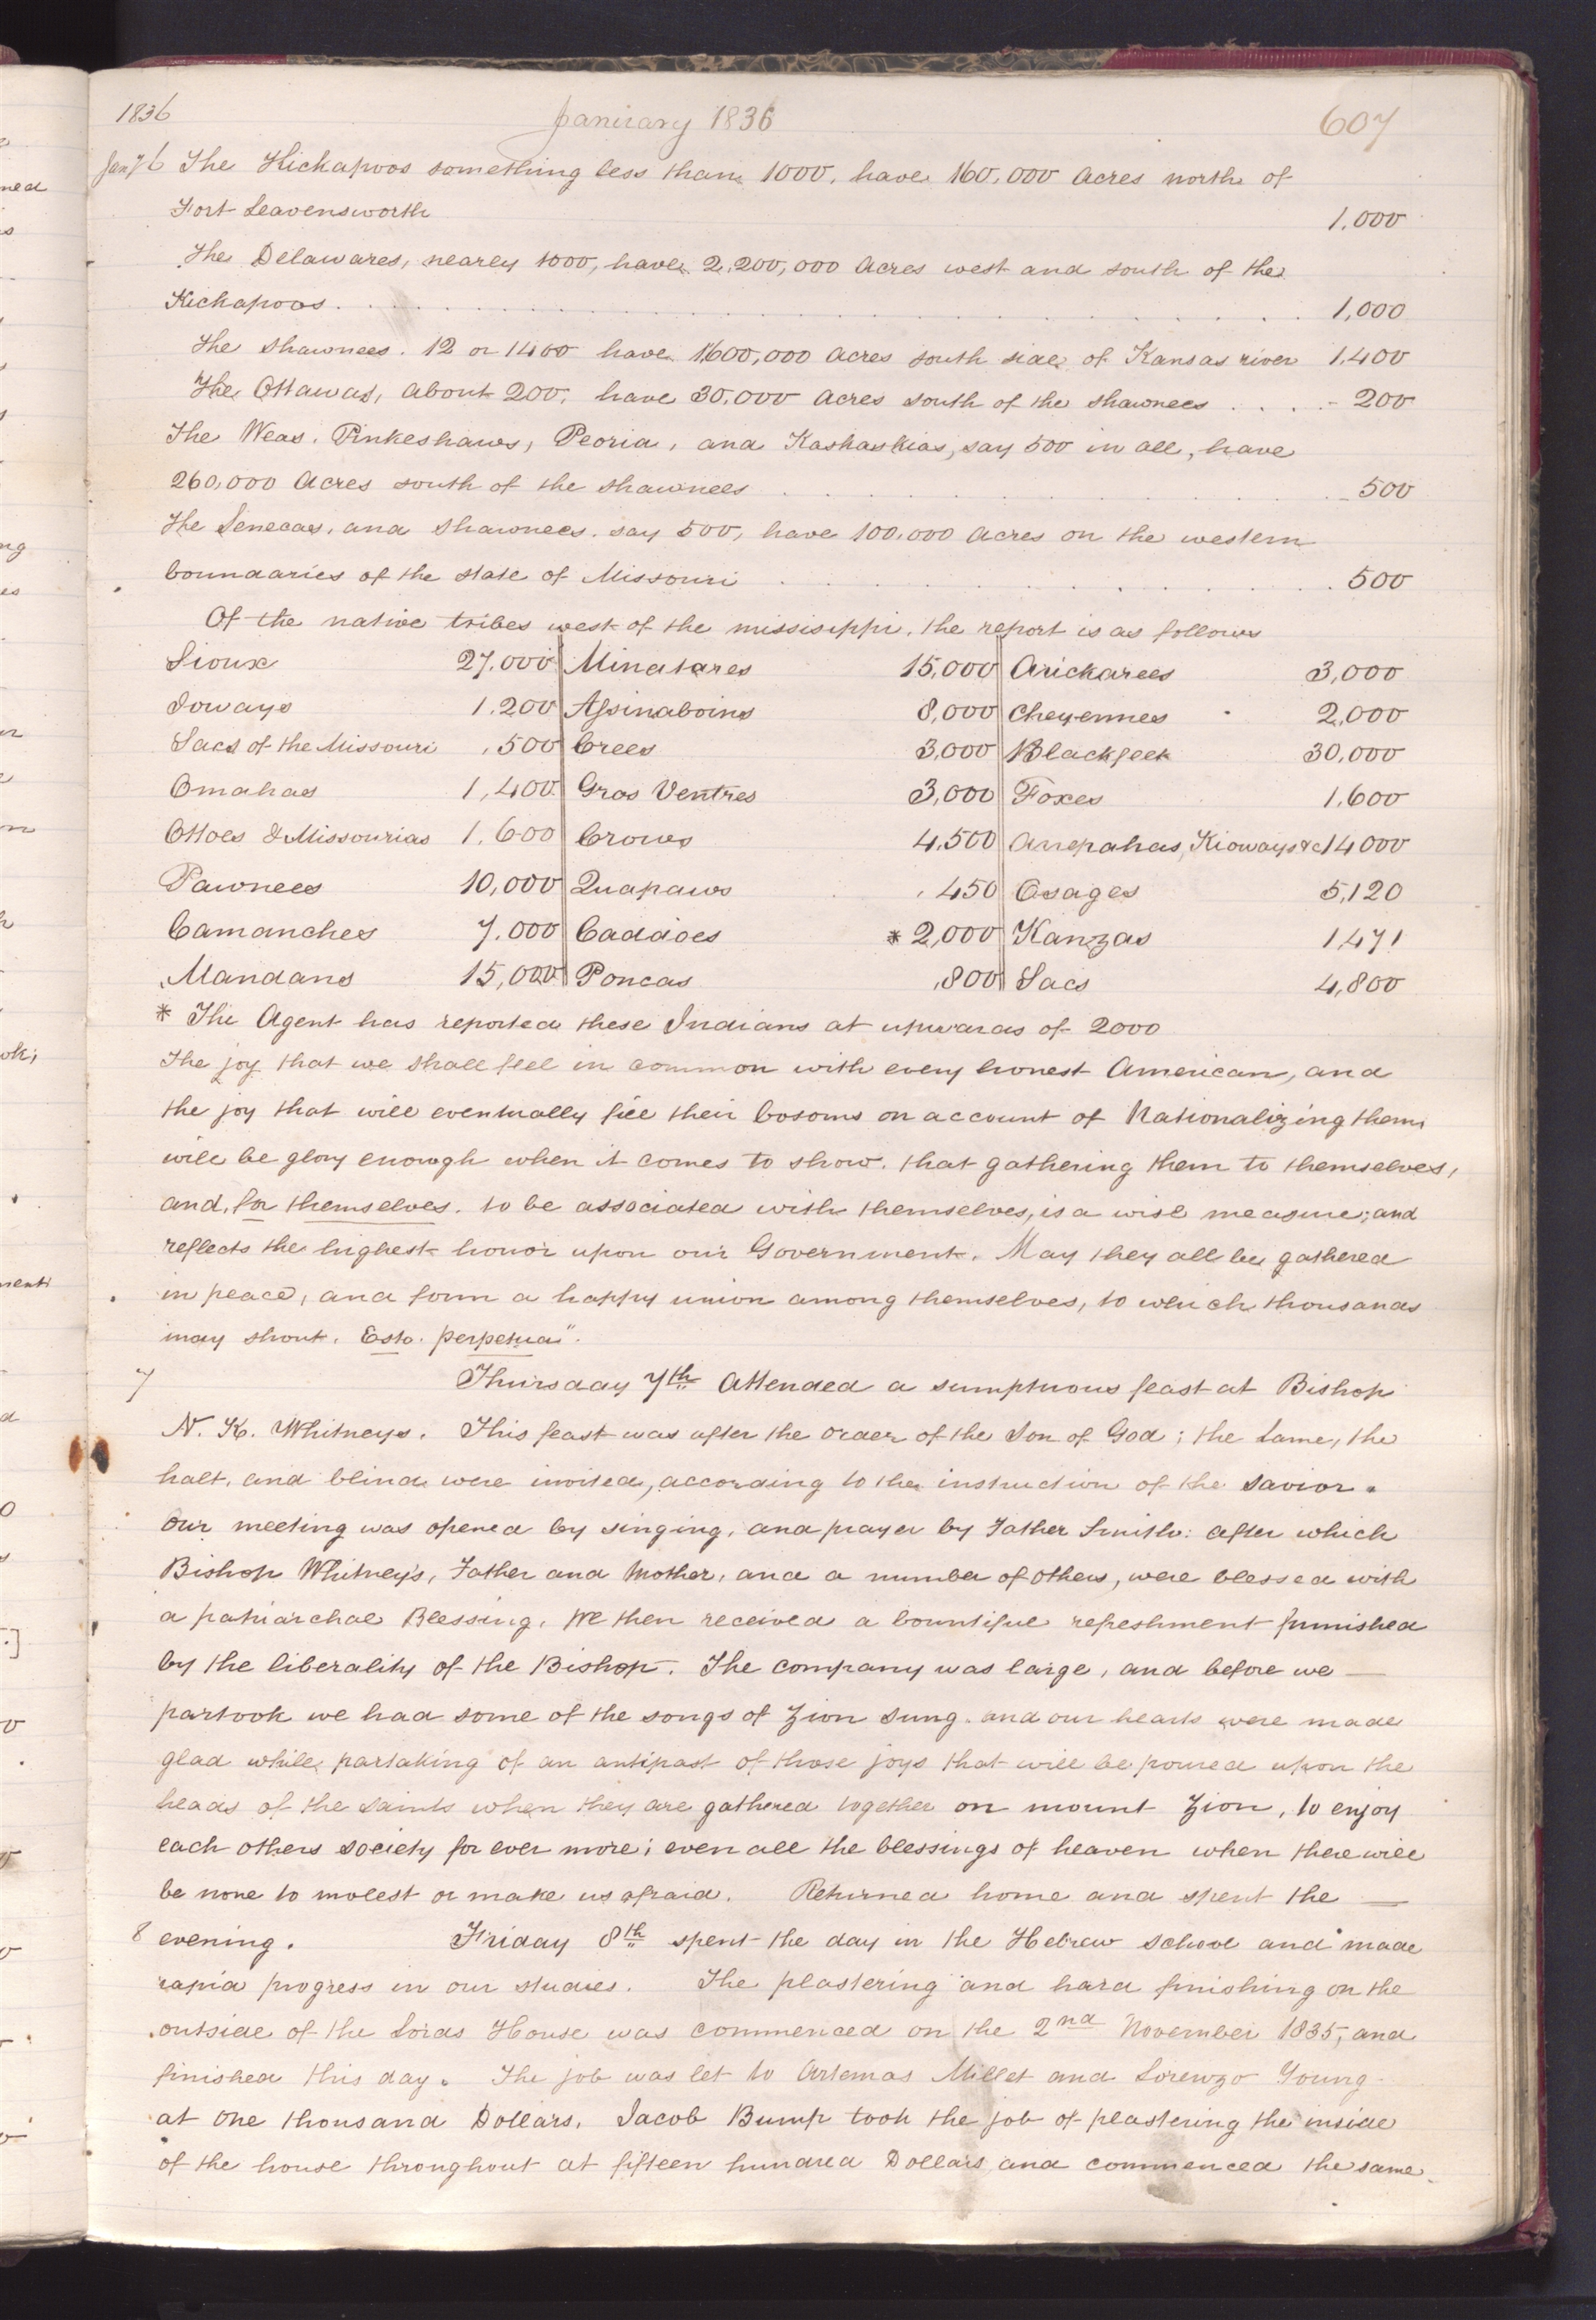 1836 January 1836 607
Jany 6 The Kickapoos something less than 1000, have 160,000 acres north of
Fort Leavensworth 1,000
The Delawares, nearly 1000, have 2,200,000 acres west and south of the
Kickapoos. 1,000
The Shawnees. 12 or 1400 have 1600,000 acres south side of Kansas river 1,400
The Ottawas, about 200, have 30,000 acres south of the Shawnees 200
The Weas, Pinkeshaws, Peoria, and Kashaskias, say 500 in all, have
260,000 acres south of the Shawnees 500
The Senecas, and Shawnees, say 500, have 100,000 acres on the western
boundaries of the state of Missouri 500
Of the native tribes west of the missisippi, the report is as follows
Sioux 27,000 Minatares 15,000 Arickarees 3,000
Ioways 1,200 Assinaboins 8,000 Cheyennes 2,000
Sacs of the Missouri ,500 Crees 3,000 Blackfeet 30,000
Omahas 1,400 Gros Ventres 3,000 Foxes 1,600
Ottoes & Missourias 1,600 Crows 4,500 Arrepahas, Kioways &c 14000
Pawnees 10,000 Quapaws , 450 Osages 5,120
Camanches 7,000 Caddoes * 2,000 Kanzas 1471
Mandans 15,000 Poncas ,800 Sacs 4,800
* The Agent has reported these Indians at upwards of 2000
The joy that we shall feel in common with every honest American, and
the joy that will eventually fill their bosoms on account of Nationalizing them,
will be glory enough when it comes to show, that gathering them to themselves,
and, for themselves, to be associated with themselves, is a wise measure; and
reflects the highest honor upon our Government. May they all be gathered
in peace, and form a happy union among themselves, to which thousands
may shout. Esto. perpetua".
7 Thursday 7th Attended a sumptuous feast at Bishop
N. K. Whitneys. This feast was after the order of the Son of God; the lame, the
halt, and blind were invited, according to the instruction of the Savior.
Our meeting was opened by singing, and prayer by Father Smith: after which
Bishop Whitney's, Father and Mother, and a number of others, were blessed with
a patriarchal Blessing. We then received a bountiful refreshment furnished
by the liberality of the Bishop. The company was large, and before we
partook we had some of the songs of Zion sung. and our hearts were made
glad while partaking of an antipast of those joys that will be poured upon the
heads of the saints when they are gathered together on mount Zion, to enjoy
each others society for ever more; even all the blessings of heaven when there will
be none to molest or make us afraid. Returned home and spent the
8 evening. Friday 8th spent the day in the Hebrew School and made
rapid progress in our studies. The plastering and hard finishing on the
outside of the Lords House was commenced on the 2nd November 1835, and
finished this day. The job was let to Artemas Millet and Lorenzo Young
at one thousand Dollars. Jacob Bump took the job of plastering the inside
of the house throughout at fifteen hundred Dollars, and commenced the same